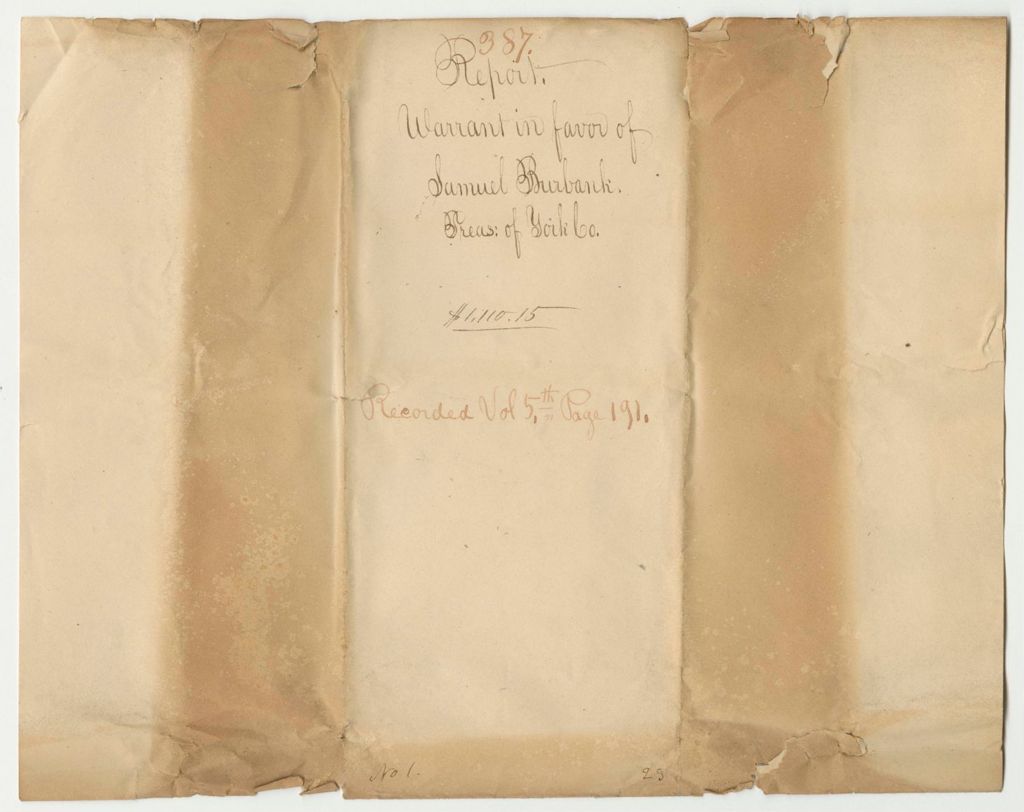 387.
Report.
Warrant in favor of
Samuel Burbank.
Treas: of York Co.
$1,110.15
Recorded Vol 5,th Page 191.
No 1.
23